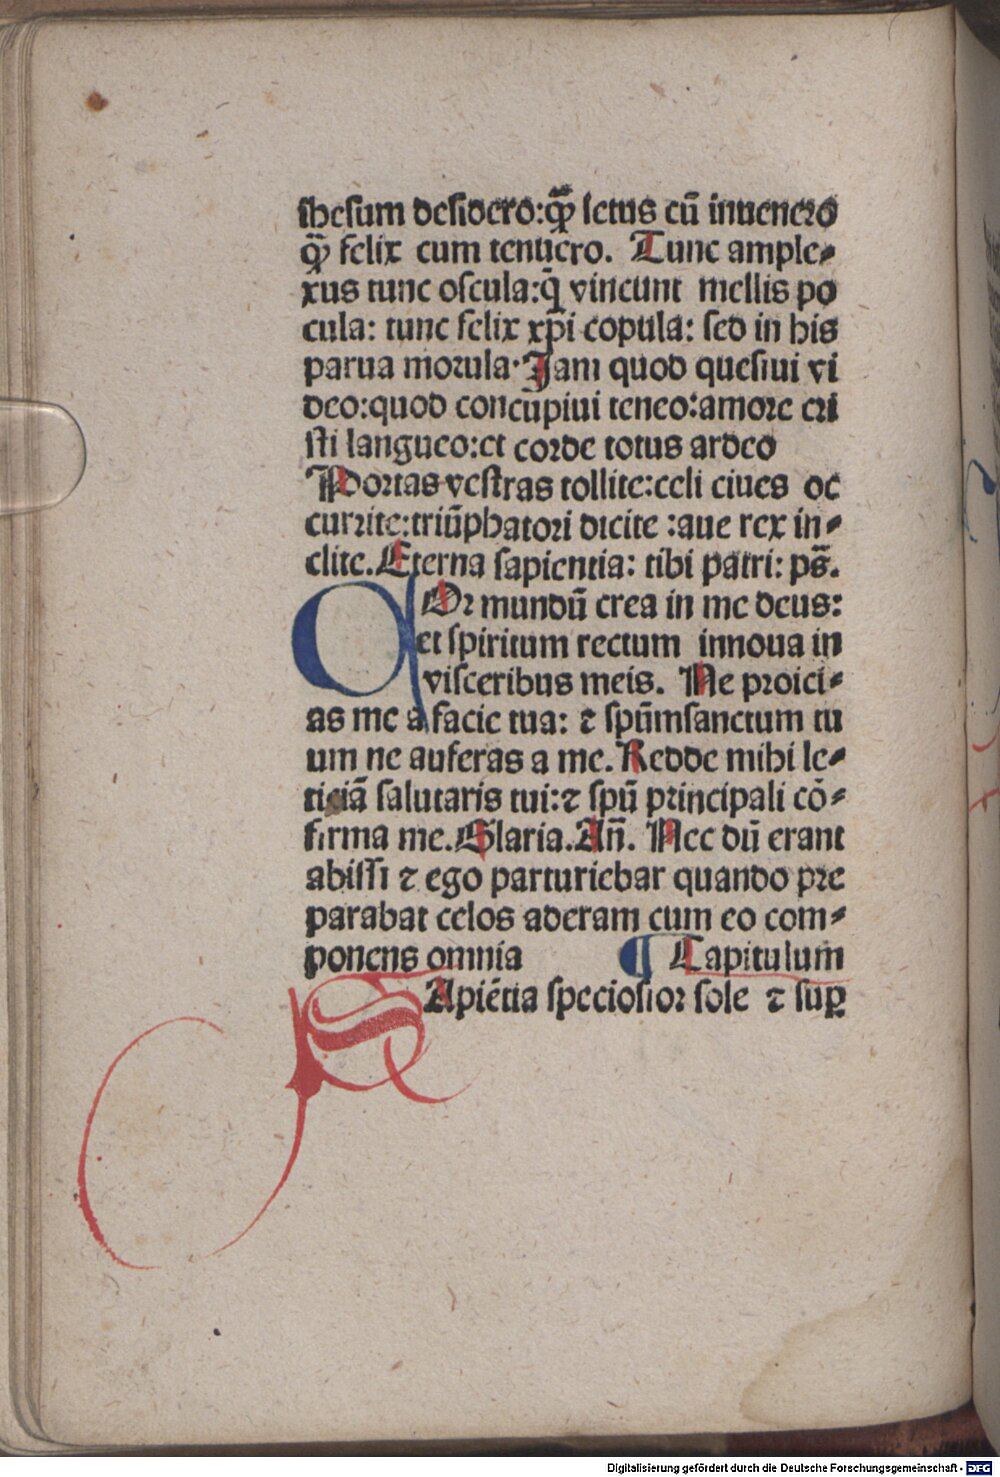 ihesum desidero:q̄ꝫ letus cū inuenero
q̄ꝫ felix cum tenuero. Tunc ample⸗
xus tunc oscula:q̄ vincunt mellis po
cula: tunc felix xpi copula: sed in his
parua morula·Jam quod quesiui vi
deo:quod concupiui teneo:amore cri
sti langueo:et corde totus ardeo
Portas vestras tollite:celi ciues oc
currite:triūphatori dicite :aue rex in⸗
clite.Eterna sapientia: tibi patri: ps̄.
COr mundū crea in me deus:
et spiritum rectum innoua in
visceribus meis. Ne proici⸗
as me a facie tua: ⁊ spūmsanctum tu
um ne auferas a me. Redde mihi le⸗
ticiā salutaris tui:⁊ spū principali cō⸗
firma me.Glaria.Añ. Nec dū erant
abissi ⁊ ego parturiebar quando pre
parabat celos aderam cum eo com⸗
ponens omnia ¶ Capitulum
SApiētia speciosior sole ⁊ suꝑ
Digitalisierung gefördert durch die Deutsche Forschungsgemeinschaft - DFG